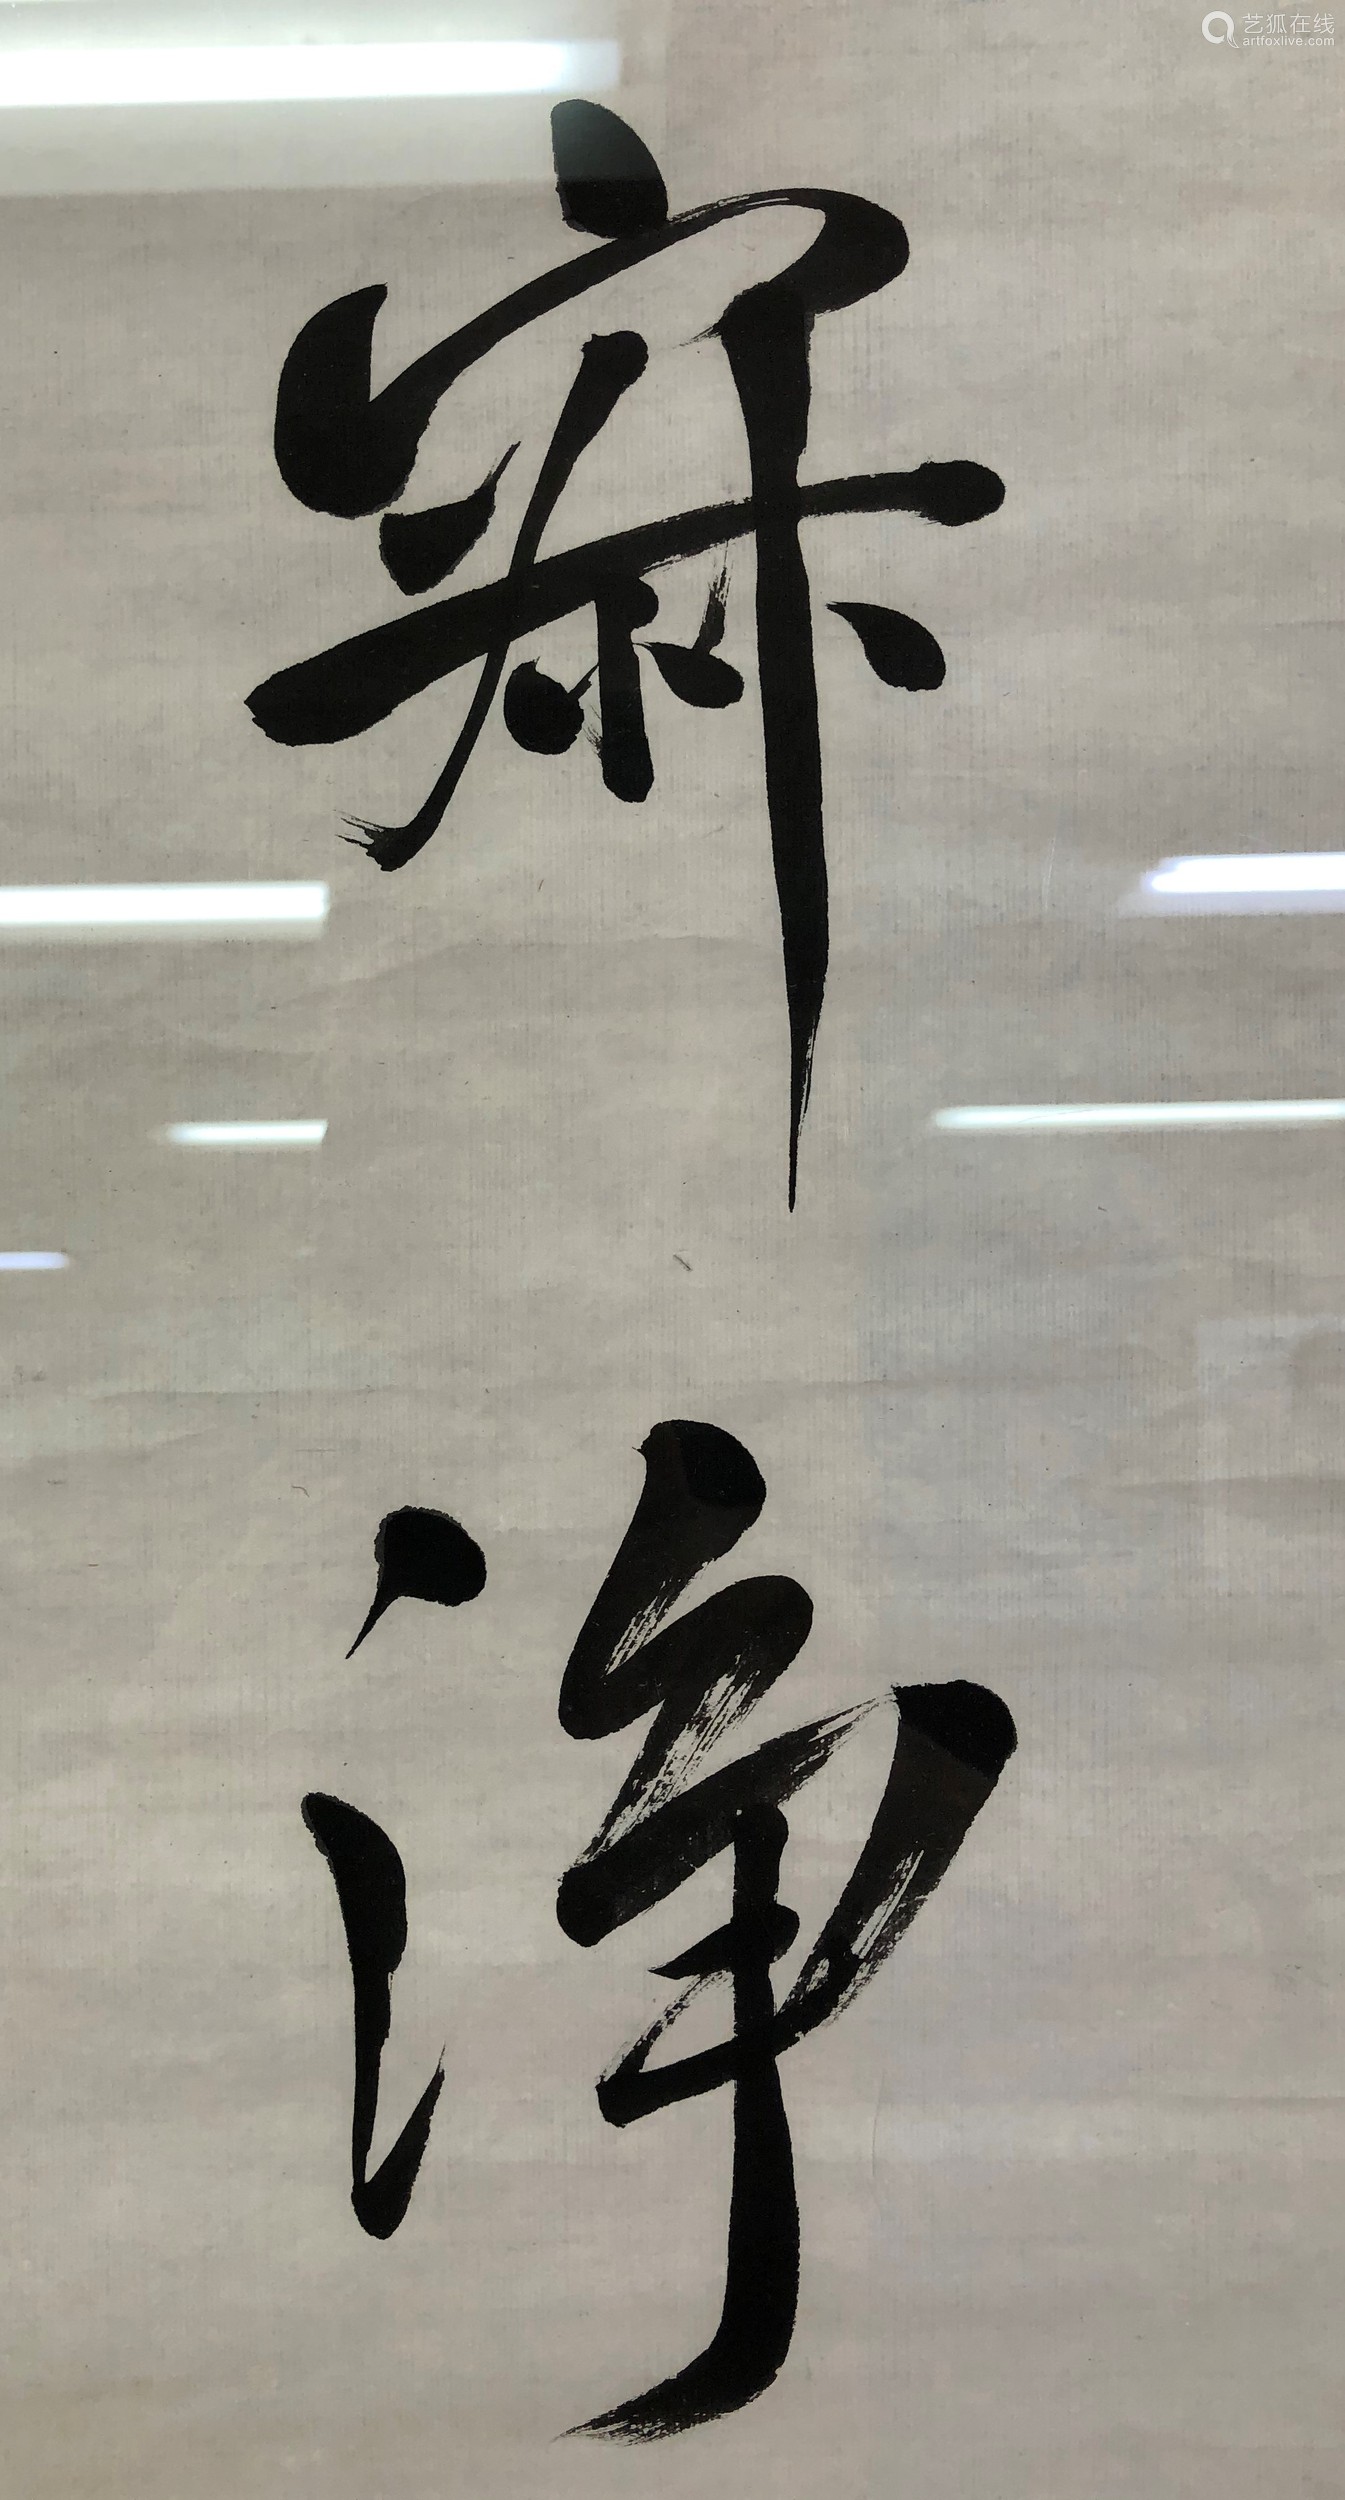 艺狐在线
artfoxlive.com
寂
浄